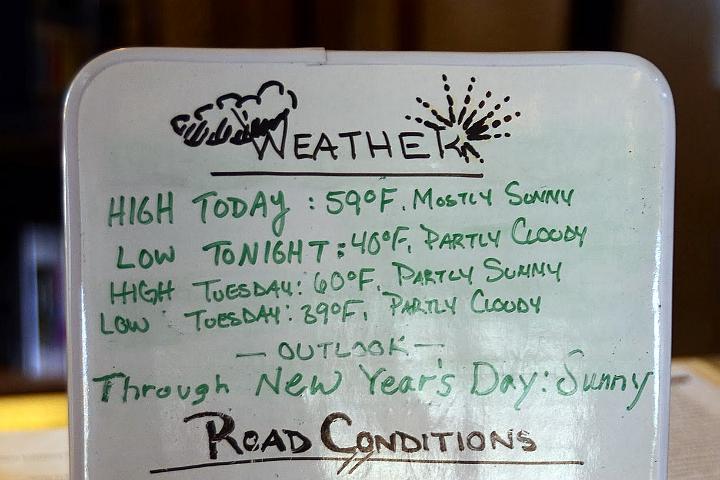 WEATHER
HIGH TODAY: 59°F, MOSTLY SUNNY
LOW TONIGHT: 40°F, PARTLY CLOUDY
HIGH TUESDAY: 60°F, PARTLY SUNNY
LOW TUESDAY: 39°F, PARTLY CLOUDY
— OUTLOOK —
Through New Year's Day: Sunny
ROAD CONDITIONS